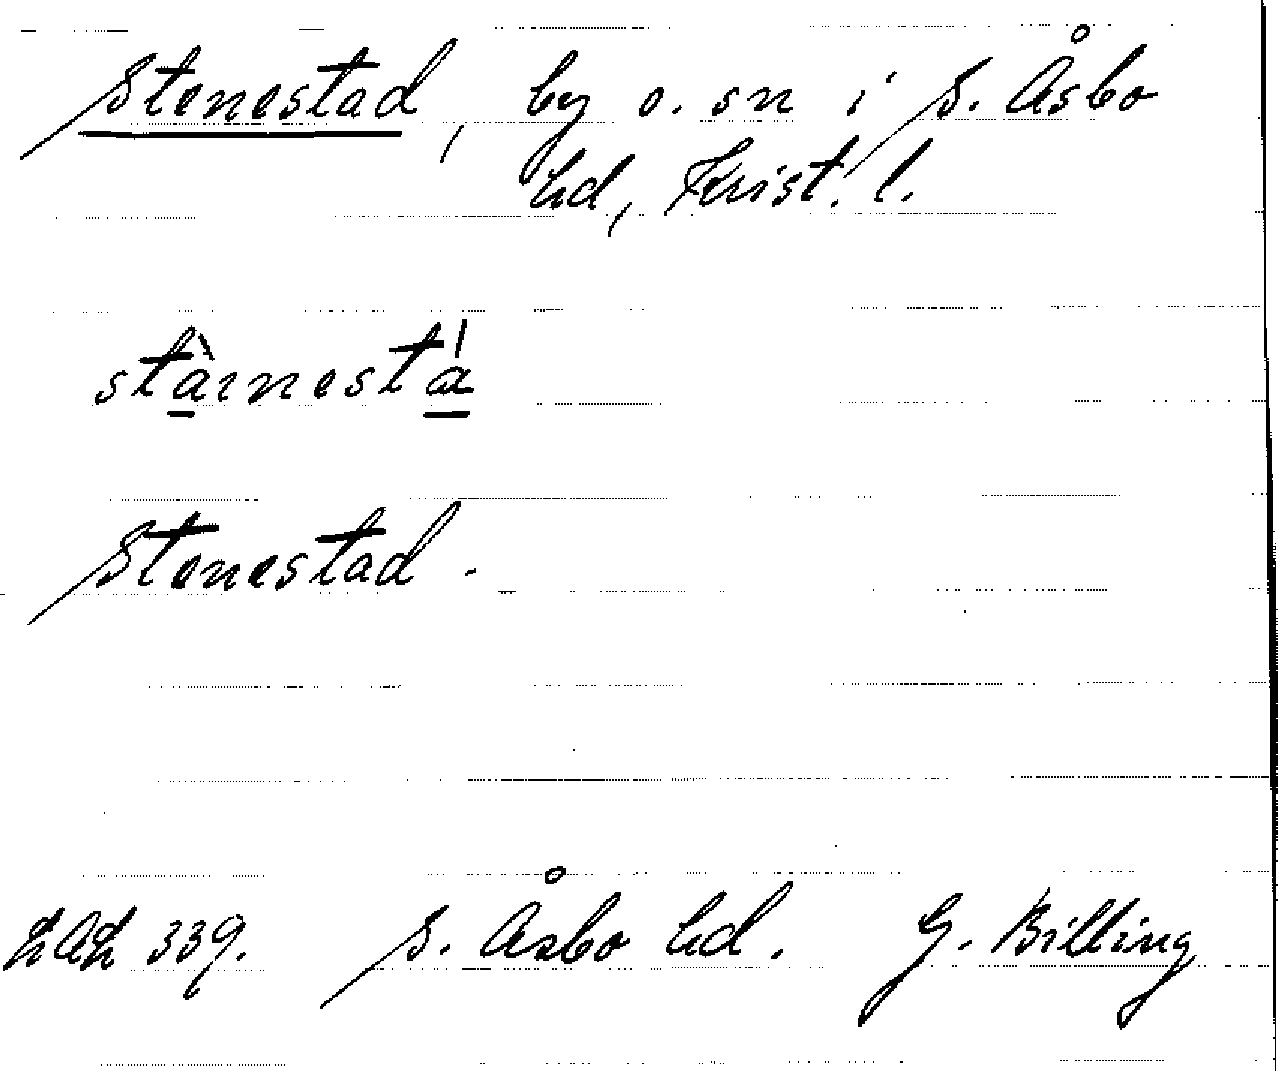 Stenestad, by o. sn i S. Åsbo
hd, Krist. l.
stàinestá
Stenestad.
LAL 339. S. Åsbo hd. G. Billing